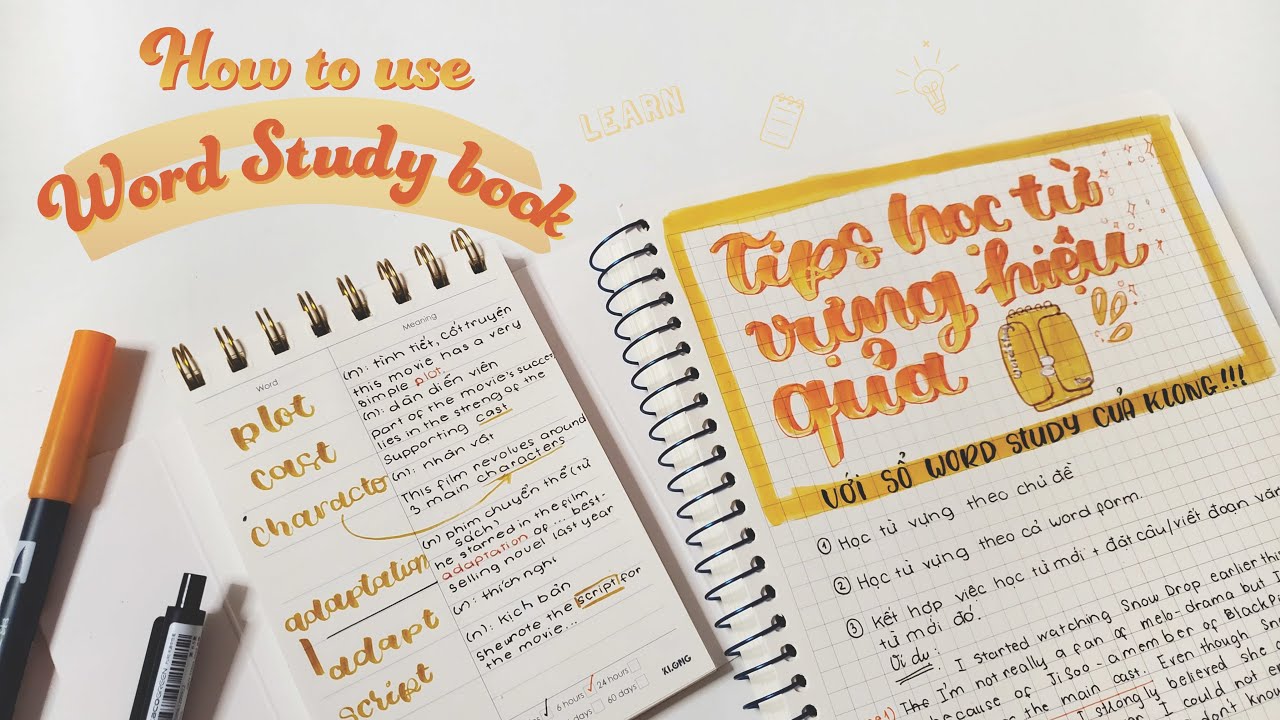 How to use
Word Study book
LEARN
Word
Meaning
plot
(n): tình tiết, cốt truyện
this movie has a very
simple plot.
cast
(n): dàn diễn viên
part of the movie's success
lies in the streng of the
supporting cast
character
(n): nhân vật
This film revolves around
3 main characters
adaptation
(n) phim chuyển thể (từ
sách)
he starred in the film
adaptation of ... best-
selling novel last year
adapt
(n: thích nghi
script
(n). kịch bản
She wrote the script for
the movie...
6 hours
24 hours
60 days
KLONG
Tips học từ
vựng hiệu
quả
VỚI SỔ WORD STUDY CỦA KLONG!!!
① Học từ vựng theo chủ đề
② Học từ vựng theo cả word form.
③ Kết hợp việc học từ mới + đặt câu/viết đoạn văn
từ mới đó.
Ví dụ:
I started watching Snow Drop earlier
The I'm not really a fan of melo-drama but I
because of Jisoo - a member of BlackP
the main cast. Even though
I strongly believed she
I could not